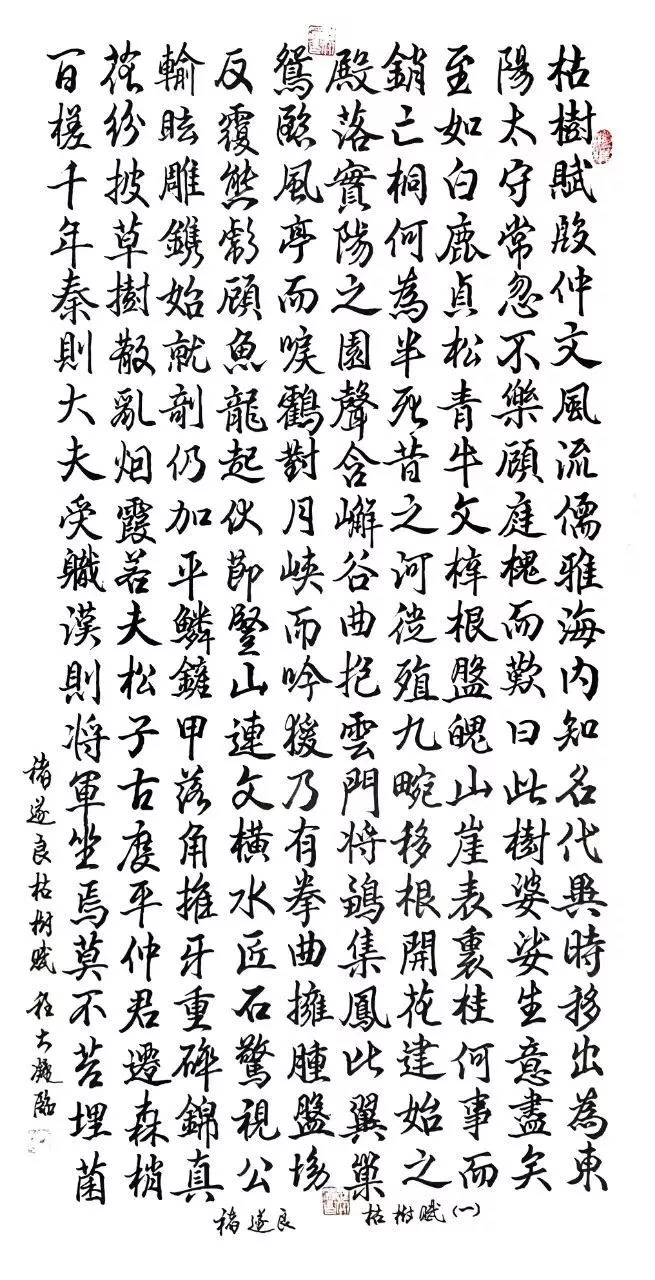 枯樹賦殷仲文風流儒雅海内知名代異時移出為東
陽太守常忽不樂顧庭槐而歎曰此樹婆娑生意盡矣
至如白鹿貞松青牛文梓根盤魄山崖表裏桂何事而
銷亡桐何為半死昔之河從殖九畹移根開花建始之
殿落實陽之園聲含嶰谷曲抱雲門将鶵集鳳比翼巢
鴛臨風亭而唳鶴對月峡而吟猨乃有拳曲擁腫盤坳
反覆熊彪顧魚龍起伏節豎山連文橫水匠石驚視公
輸眩雕鐫始就剞仍加平鱗鏟甲落角摧牙重碎錦真
花紛披草樹散亂烟霞若夫松子古度平仲君遷森梢
百槎千年秦則大夫受職漢則将軍坐焉莫不苔埋菌
褚遂良枯樹賦 程大臨
枯樹賦(一)
褚遂良